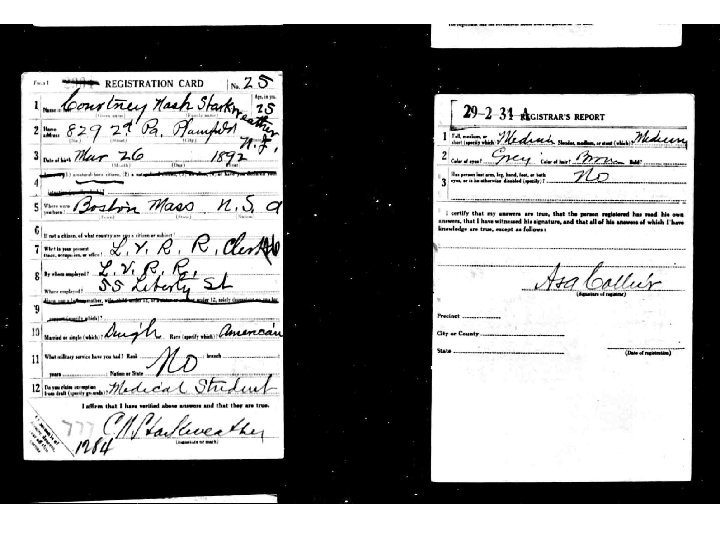 REGISTRATION CARD No. 25
Age, in yrs.
1 Name in full Courtney Nash Starkweather 25
(Given name) (Family name)
2 Home address 829 2d Pl. Plainfield N.J.
(No.) (Street) (City)
3 Date of birth Mar 26 1892
(Month) (Day) (Year)
4
5 Where were you born? Boston Mass U.S.A
(Town) (State) (Nation)
6 If not a citizen, of what country are you a citizen or subject?
7 What is your present trade, occupation, or office? L. V. R. R. Clerk
8 By whom employed? L. V. R. R.
Where employed? 55 Liberty St
9
10 Married or single (which)? Single Race (specify which)? American
11 What military service have you had? Rank No branch
years Nation or State
12 Do you claim exemption from draft (specify grounds)? Medical Student
I affirm that I have verified above answers and that they are true.
C N Starkweather
(Signature or mark)
777
1284
29-2 31 A REGISTRAR'S REPORT
1 Tall, medium, or short (specify which)? Medium Slender, medium, or stout (which)? Medium
2 Color of eyes? Grey Color of hair? Brown Bald?
3 Has person lost arm, leg, hand, foot, or both eyes, or is he otherwise disabled (specify)? No
I certify that my answers are true, that the person registered has read his own
answers, that I have witnessed his signature, and that all of his answers of which I have
knowledge are true, except as follows:
Asa Collier
(Signature of registrar)
Precinct
City or County
State
(Date of registration)